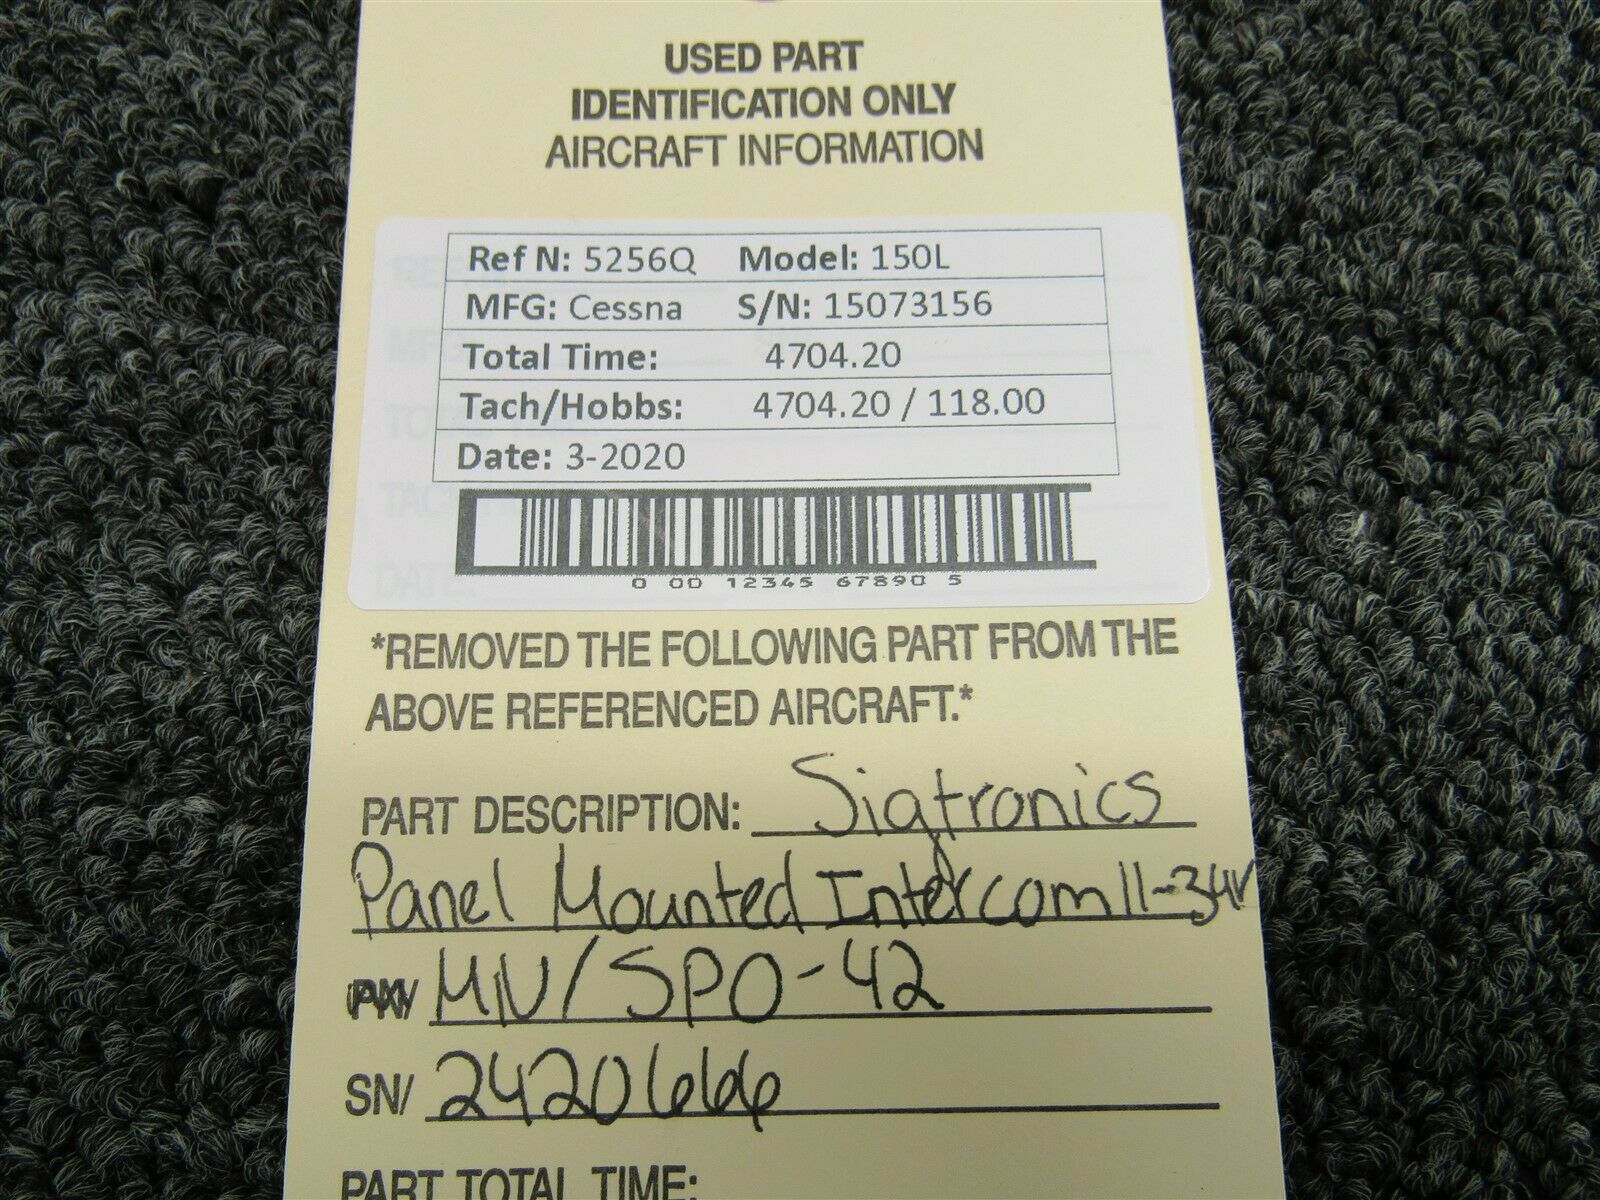 USED PART
IDENTIFICATION ONLY
AIRCRAFT INFORMATION
Ref N: 5256Q Model: 150L
MFG: Cessna S/N: 15073156
Total Time: 4704.20
Tach/Hobbs: 4704.20 / 118.00
Date: 3-2020
0 00 12345 67890 5
*REMOVED THE FOLLOWING PART FROM THE
ABOVE REFERENCED AIRCRAFT.*
PART DESCRIPTION: Sigtronics
Panel Mounted Intercom 11-34V
MN/SPO-42
SN/ 2420666
PART TOTAL TIME: